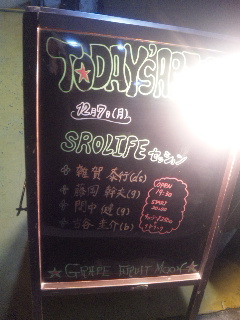 TODAY'S
12月7日(月)
SROLIFE セッション
雑賀 恭行(ds)
藤岡 幹大(g)
田中 健(g)
古谷 光介(b)
OPEN
19:30
START
20:00
GRAPE FRUIT MOON